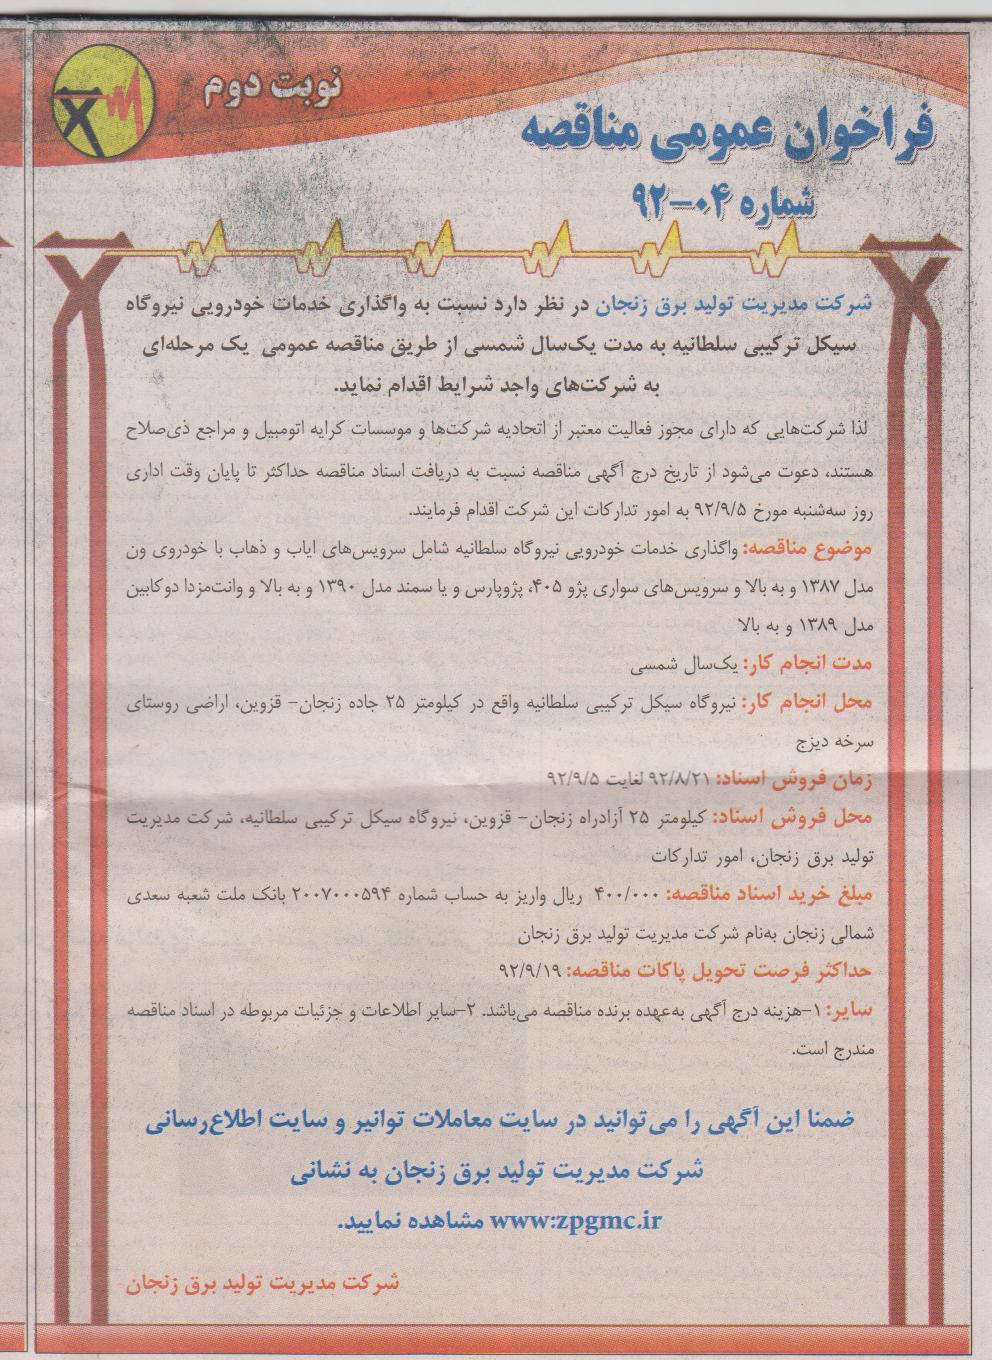 نوبت دوم
فراخوان عمومی مناقصه
شماره ۰۴-۹۲
شرکت مدیریت تولید برق زنجان در نظر دارد نسبت به واگذاری خدمات خودرویی نیروگاه
سیکل ترکیبی سلطانیه به مدت یک‌سال شمسی از طریق مناقصه عمومی یک مرحله‌ای
به شرکت‌های واجد شرایط اقدام نماید.
لذا شرکت‌هایی که دارای مجوز فعالیت معتبر از اتحادیه شرکت‌ها و موسسات کرایه اتومبیل و مراجع ذی‌صلاح
هستند، دعوت می‌شود از تاریخ درج آگهی مناقصه نسبت به دریافت اسناد مناقصه حداکثر تا پایان وقت اداری
روز سه‌شنبه مورخ ۹۲/۹/۵ به امور تدارکات این شرکت اقدام فرمایند.
موضوع مناقصه: واگذاری خدمات خودرویی نیروگاه سلطانیه شامل سرویس‌های ایاب و ذهاب با خودروی ون
مدل ۱۳۸۷ و به بالا و سرویس‌های سواری پژو ۴۰۵، پژوپارس و یا سمند مدل ۱۳۹۰ و به بالا و وانت‌مزدا دوکابین
مدل ۱۳۸۹ و به بالا
مدت انجام کار: یک‌سال شمسی
محل انجام کار: نیروگاه سیکل ترکیبی سلطانیه واقع در کیلومتر ۲۵ جاده زنجان- قزوین، اراضی روستای
سرخه دیزج
زمان فروش اسناد: ۹۲/۸/۲۱ لغایت ۹۲/۹/۵
محل فروش اسناد: کیلومتر ۲۵ آزادراه زنجان- قزوین، نیروگاه سیکل ترکیبی سلطانیه، شرکت مدیریت
تولید برق زنجان، امور تدارکات
مبلغ خرید اسناد مناقصه: ۴۰۰/۰۰۰ ریال واریز به حساب شماره ۲۰۰۷۰۰۰۵۹۴ بانک ملت شعبه سعدی
شمالی زنجان به‌نام شرکت مدیریت تولید برق زنجان
حداکثر فرصت تحویل پاکات مناقصه: ۹۲/۹/۱۹
سایر: ۱-هزینه درج آگهی به‌عهده برنده مناقصه می‌باشد. ۲-سایر اطلاعات و جزئیات مربوطه در اسناد مناقصه
مندرج است.
ضمنا این آگهی را می‌توانید در سایت معاملات توانیر و سایت اطلاع‌رسانی
شرکت مدیریت تولید برق زنجان به نشانی
www:zpgmc.ir مشاهده نمایید.
شرکت مدیریت تولید برق زنجان